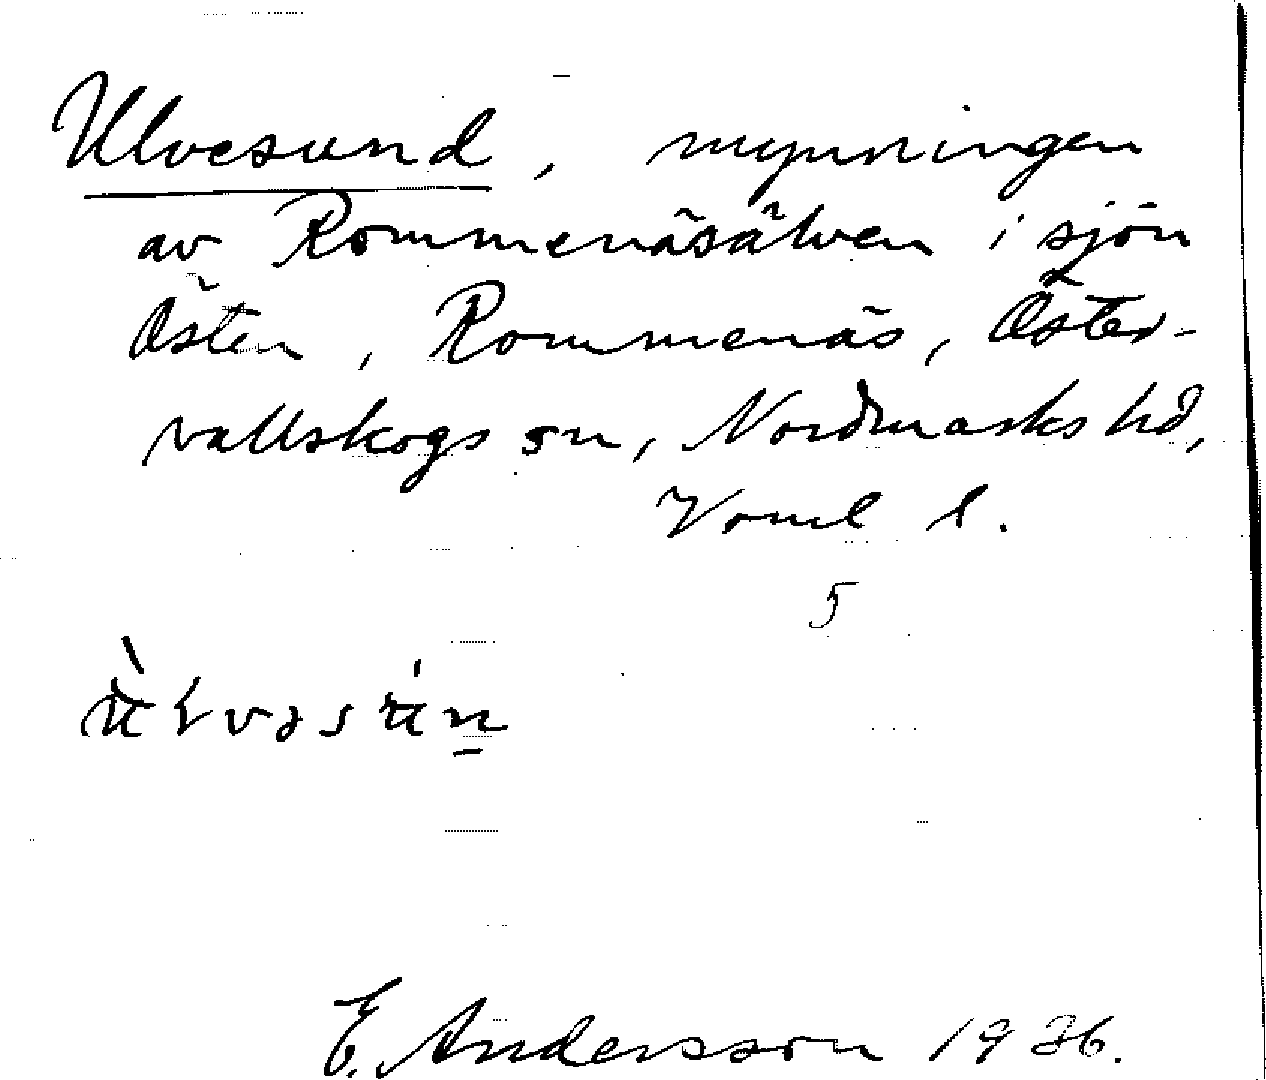 Ulvesund, mynningen
av Rommenäsälven i sjön
Östen, Rommenäs, Öster-
vallskogs sn, Nordmarks hd,
Verml l.
5
E. Andersson 1936.